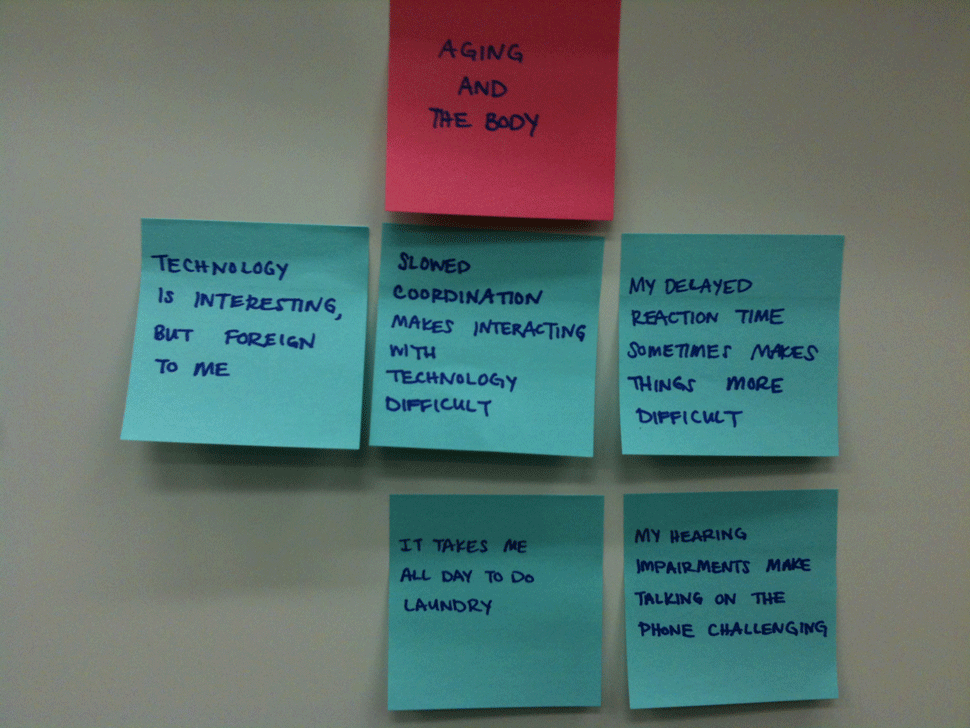 AGING
AND
THE BODY
TECHNOLOGY
IS INTERESTING,
BUT FOREIGN
TO ME
SLOWED
COORDINATION
MAKES INTERACTING
WITH
TECHNOLOGY
DIFFICULT
MY DELAYED
REACTION TIME
SOMETIMES MAKES
THINGS MORE
DIFFICULT
IT TAKES ME
ALL DAY TO DO
LAUNDRY
MY HEARING
IMPAIRMENTS MAKE
TALKING ON THE
PHONE CHALLENGING